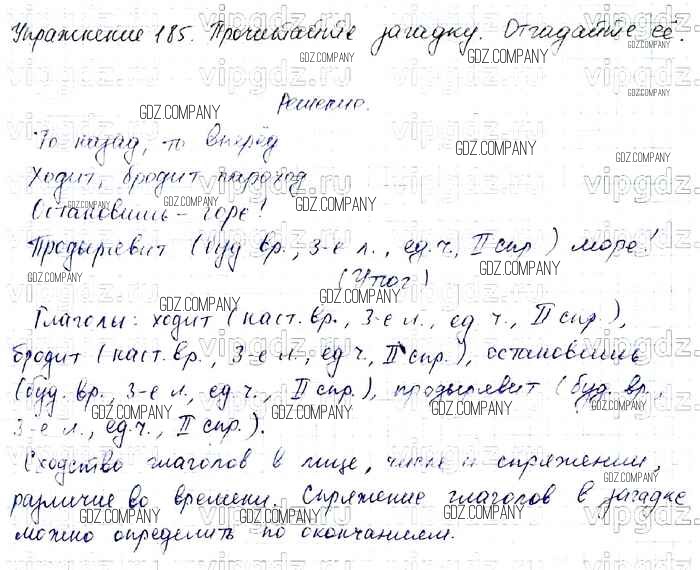 Упражнение 185. Прочитайте загадку. Отгадайте её.
Решение.
То назад, то вперёд
Ходит, бродит пароход
Остановишь – горе!
Продырявит (буд вр., 3-е л., ед.ч., II спр.) море!
(Утюг)
Глаголы: ходит (наст. вр., 3-е л., ед ч., II спр.),
бродит (наст. вр., 3-е л., ед ч., II спр.), остановишь
(буд. вр., 3-е л., ед.ч., II спр.), продырявит (буд. вр.,
3-е л., ед.ч., II спр.).
Сходство глаголов в лице, числе и спряжении,
различие во времени. Спряжение глаголов в загадке
можно определить по окончаниям.
GDZ.COMPANY
vipgdz.ru